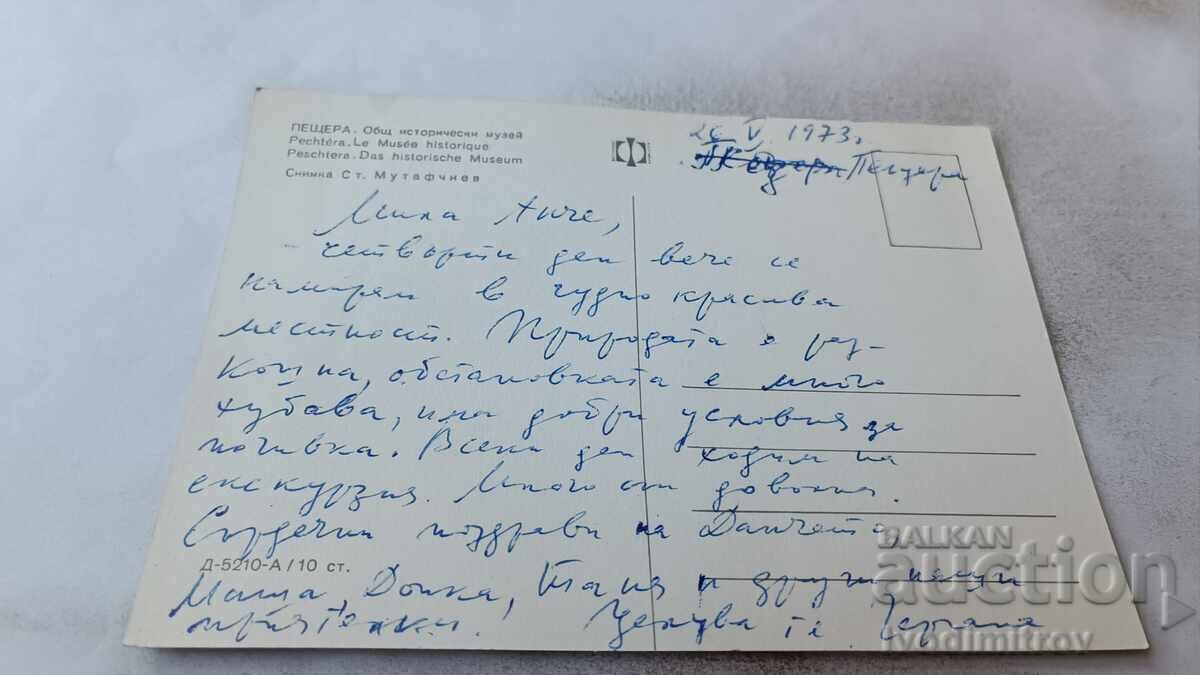 ПЕЩЕРА. Общ исторически музей
Pechtéra. Le Musée historique
Peschtera. Das historische Museum
Снимка Ст. Мутафчиев
26 V. 1973г.
Пещера
Мила Анче,
четвърти ден вече се
намирам в чудно красива
местност. Природата е раз-
кошна, обстановката е много
хубава, има добри условия за
почивка. Всеки ден ходим на
екскурзия. Много сми доволни.
Сърдечни поздрави на Данчета,
Д-5210-А/10 ст.
Маша, Донка, Таня и други наши
приятелки. Целува те Гергана
BALKAN
auction
ivodimitrov